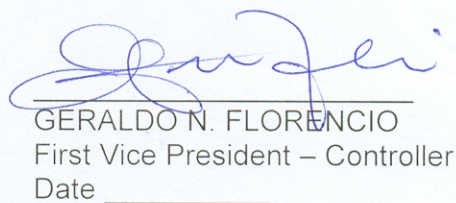 GERALDO N. FLORENCIO
First Vice President – Controller
Date